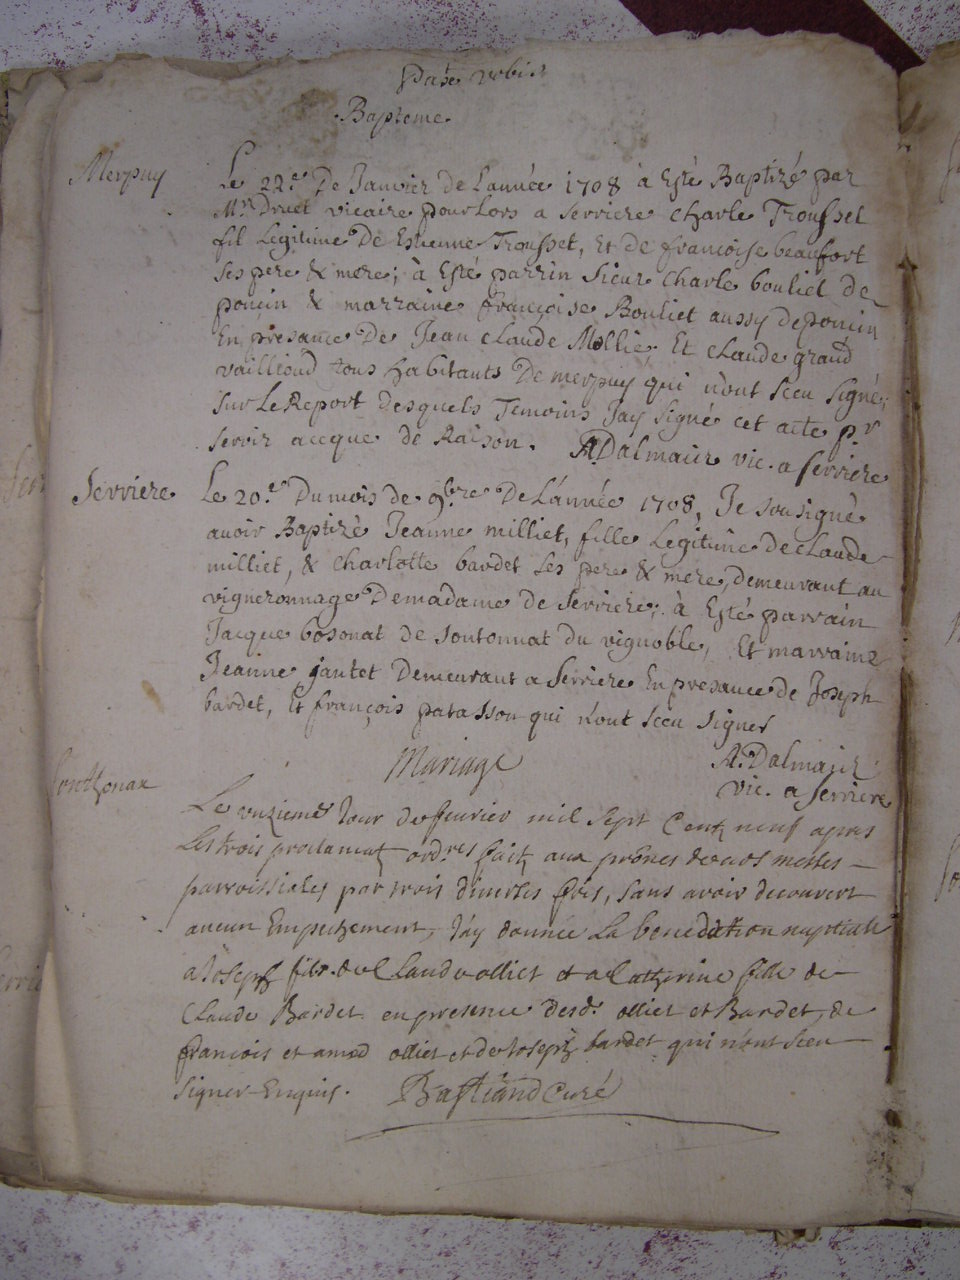 Bapteme.
Merpuy
Le 22.e De Janvier de L'année 1708 à Esté Baptizé par
Mr. Druet vicaire pour Lors a serriere charle Trousset
fil Legitime De Estienne Trousset, Et de francoise beaufort
ses pere & mere; à Esté parrin sieur charle bouliet de
poncin & marraine françoise Bouliet aussy de poncin
En presance De Jean claude Mollie Et claude grand
vailliond tous habitants De merpuy qui n'ont sceu signé,
sur Le Report desquels Temoins Jay signé cet acte pr
servir aceque de Raison. A. Dalmaiz vic. a serriere
Serriere
Le 20.e Du mois de 9bre De L'année 1708, Je sousigné
avoir Baptizé Jeanne milliet, fille Legitime De claude
milliet, & charlotte bardet ses pere & mere, demeurant au
vigneronnage De madame de serriere; à Esté parrain
Jacque bosonat de soutonnat du vignoble, Et marraine
Jeanne jantet Demeurant a serriere En presance de Joseph
bardet, Et françois patasson qui n'ont sceu signer
A. Dalmaiz
vic. a serriere
Mariage
Le unzieme Jour de fevrier mil sept centz neuf apres
Les trois proclamatz ordres faitz aux prônes de nos messes
parroissiales par trois diverses fois, sans avoir decouvert
aucun Empechement, J'ay donnée La benediction nuptiale
a Joseph filz de Claud olliet et a Catherine fille de
Claude Bardet en presence desd. olliet et Bardet, de
francois et amed olliet et de Joseph bardet qui n'ont sceu
signer Enquis. Bastiand Curé